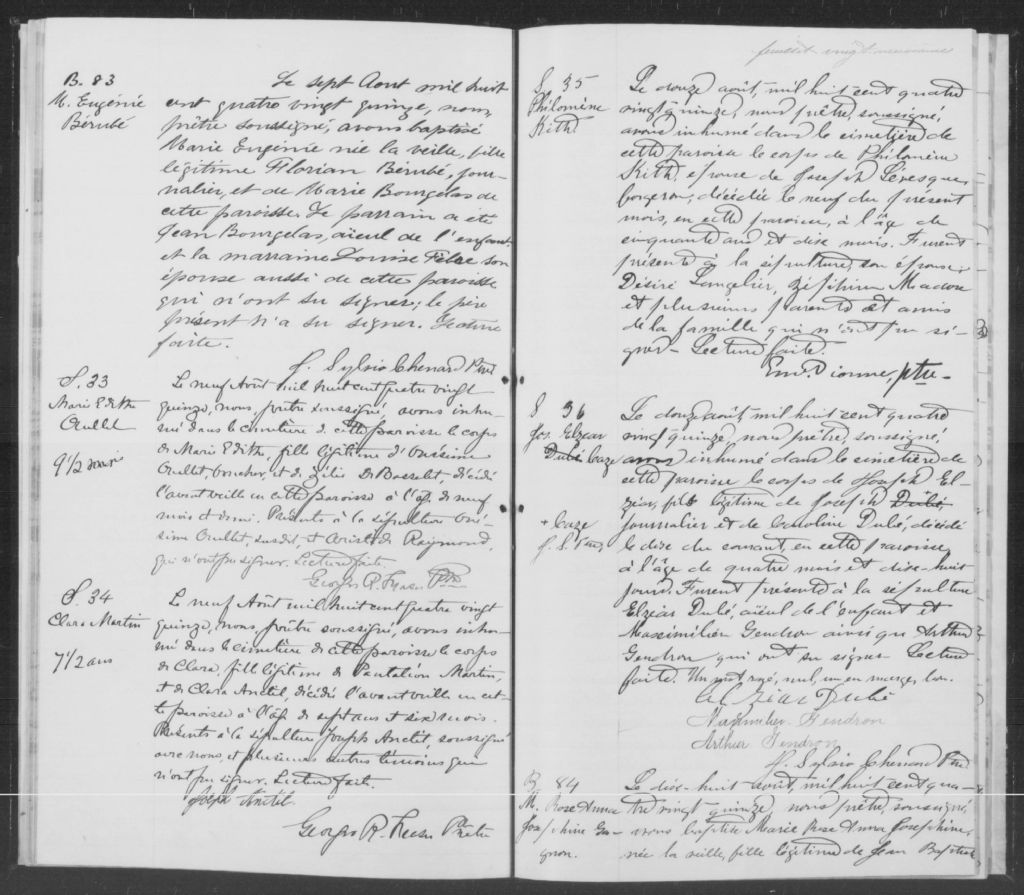 B. 83
M. Eugénie
Bérubé
Le sept Aout mil huit
cent quatre vingt quinze, nous,
prêtre soussigné, avons baptisé
Marie Eugénie née la veille, fille
légitime Florian Bérubé, jour-
nalier, et de Marie Bourgelas de
cette paroisse. Le parrain a été
Jean Bourgelas, aïeul de l'enfant
et la marraine Louise son
épouse aussi de cette paroisse
qui n'ont su signer; le père
présent n'a su signer. Lecture
faite.
J. Sylvio Chenard Ptre
S. 33
Marie Edithe
Ouellet
9 1/2 mois
Le neuf Août mil huit cent quatre vingt
quinze, nous, prêtre soussigné, avons inhu-
mé dans le cimetière de cette paroisse le corps
de Marie Edithe, fille légitime de Onésime
Ouellet, boucher, et de Zélie Du Bosselet, décédé
l'avant veille en cette paroisse à l'âge de neuf
mois et demi. Présents à la sépulture Oné-
sime Ouellet, susdit, et Aristide Raymond,
qui n'ont pu signer. Lecture faite.
Georges R. Ptre
S. 34
Clara Martin
7 1/2 ans
Le neuf Août mil huit cent quatre vingt
quinze, nous, prêtre soussigné, avons inhu-
mé dans le cimetière de cette paroisse le corps
de Clara, fille légitime de Pantaléon Martin,
et de Clara Anctil, décédé l'avant veille en cet-
te paroisse à l'âge de sept ans et six mois.
Présents à la sépulture Joseph Anctil, soussigné
avec nous, et plusieurs autres témoins qui
n'ont pu signer. Lecture faite.
Joseph Anctil
Georges R. Prêtre
feuillet vingt-neuvième
S 35
Philomène
Kith
Le douze août, mil huit cent quatre
vingt quinze, nous prêtre, soussigné,
avons inhumé dans le cimetière de
cette paroisse le corps de Philomène
Kith, epouse de Joseph Lévesque,
forgeron, décédée le neuf du présent
mois, en cette paroisse, à l'âge de
cinquante ans et dix mois. Furent
présents à la sépulture, son époux,
Désiré Langelier, Zéphirin Madore
et plusieurs parents et amis
de la famille qui n'ont pu si-
gner - Lecture faite.
Em. Dionne, ptre -
S 36
Jos. Elzéar
Dubé Caze
+ Caze
J. S. C. Ptre
Le douze août, mil huit cent quatre
vingt quinze, nous prêtre, soussigné,
avons inhumé dans le cimetière de
cette paroisse le corps de Joseph El-
zéar, fils légitime de Joseph Dubé,
journalier et de Caroline Dubé, décédé
le dix du courant, en cette paroisse,
à l'âge de quatre mois et dix-huit
jours. Furent présents à la sépulture
Elzéar Dubé, aïeul de l'enfant et
Maximilien Gendron ainsi que Arthur
Gendron qui ont su signer Lecture
faite. Un mot rayé, nul, un en marge, bon.
Elzéar Dubé
Maximilien Gendron
Arthur Gendron
J. Sylvio Chenard Ptre
B 84
M. Rose Anna
Joséphine Ga-
gnon.
Le dix-huit août, mil huit cent qua-
tre vingt quinze, nous prêtre, soussigné,
avons baptisé Marie Rose Anna Joséphine,
née la veille, fille légitime de Jean Baptiste